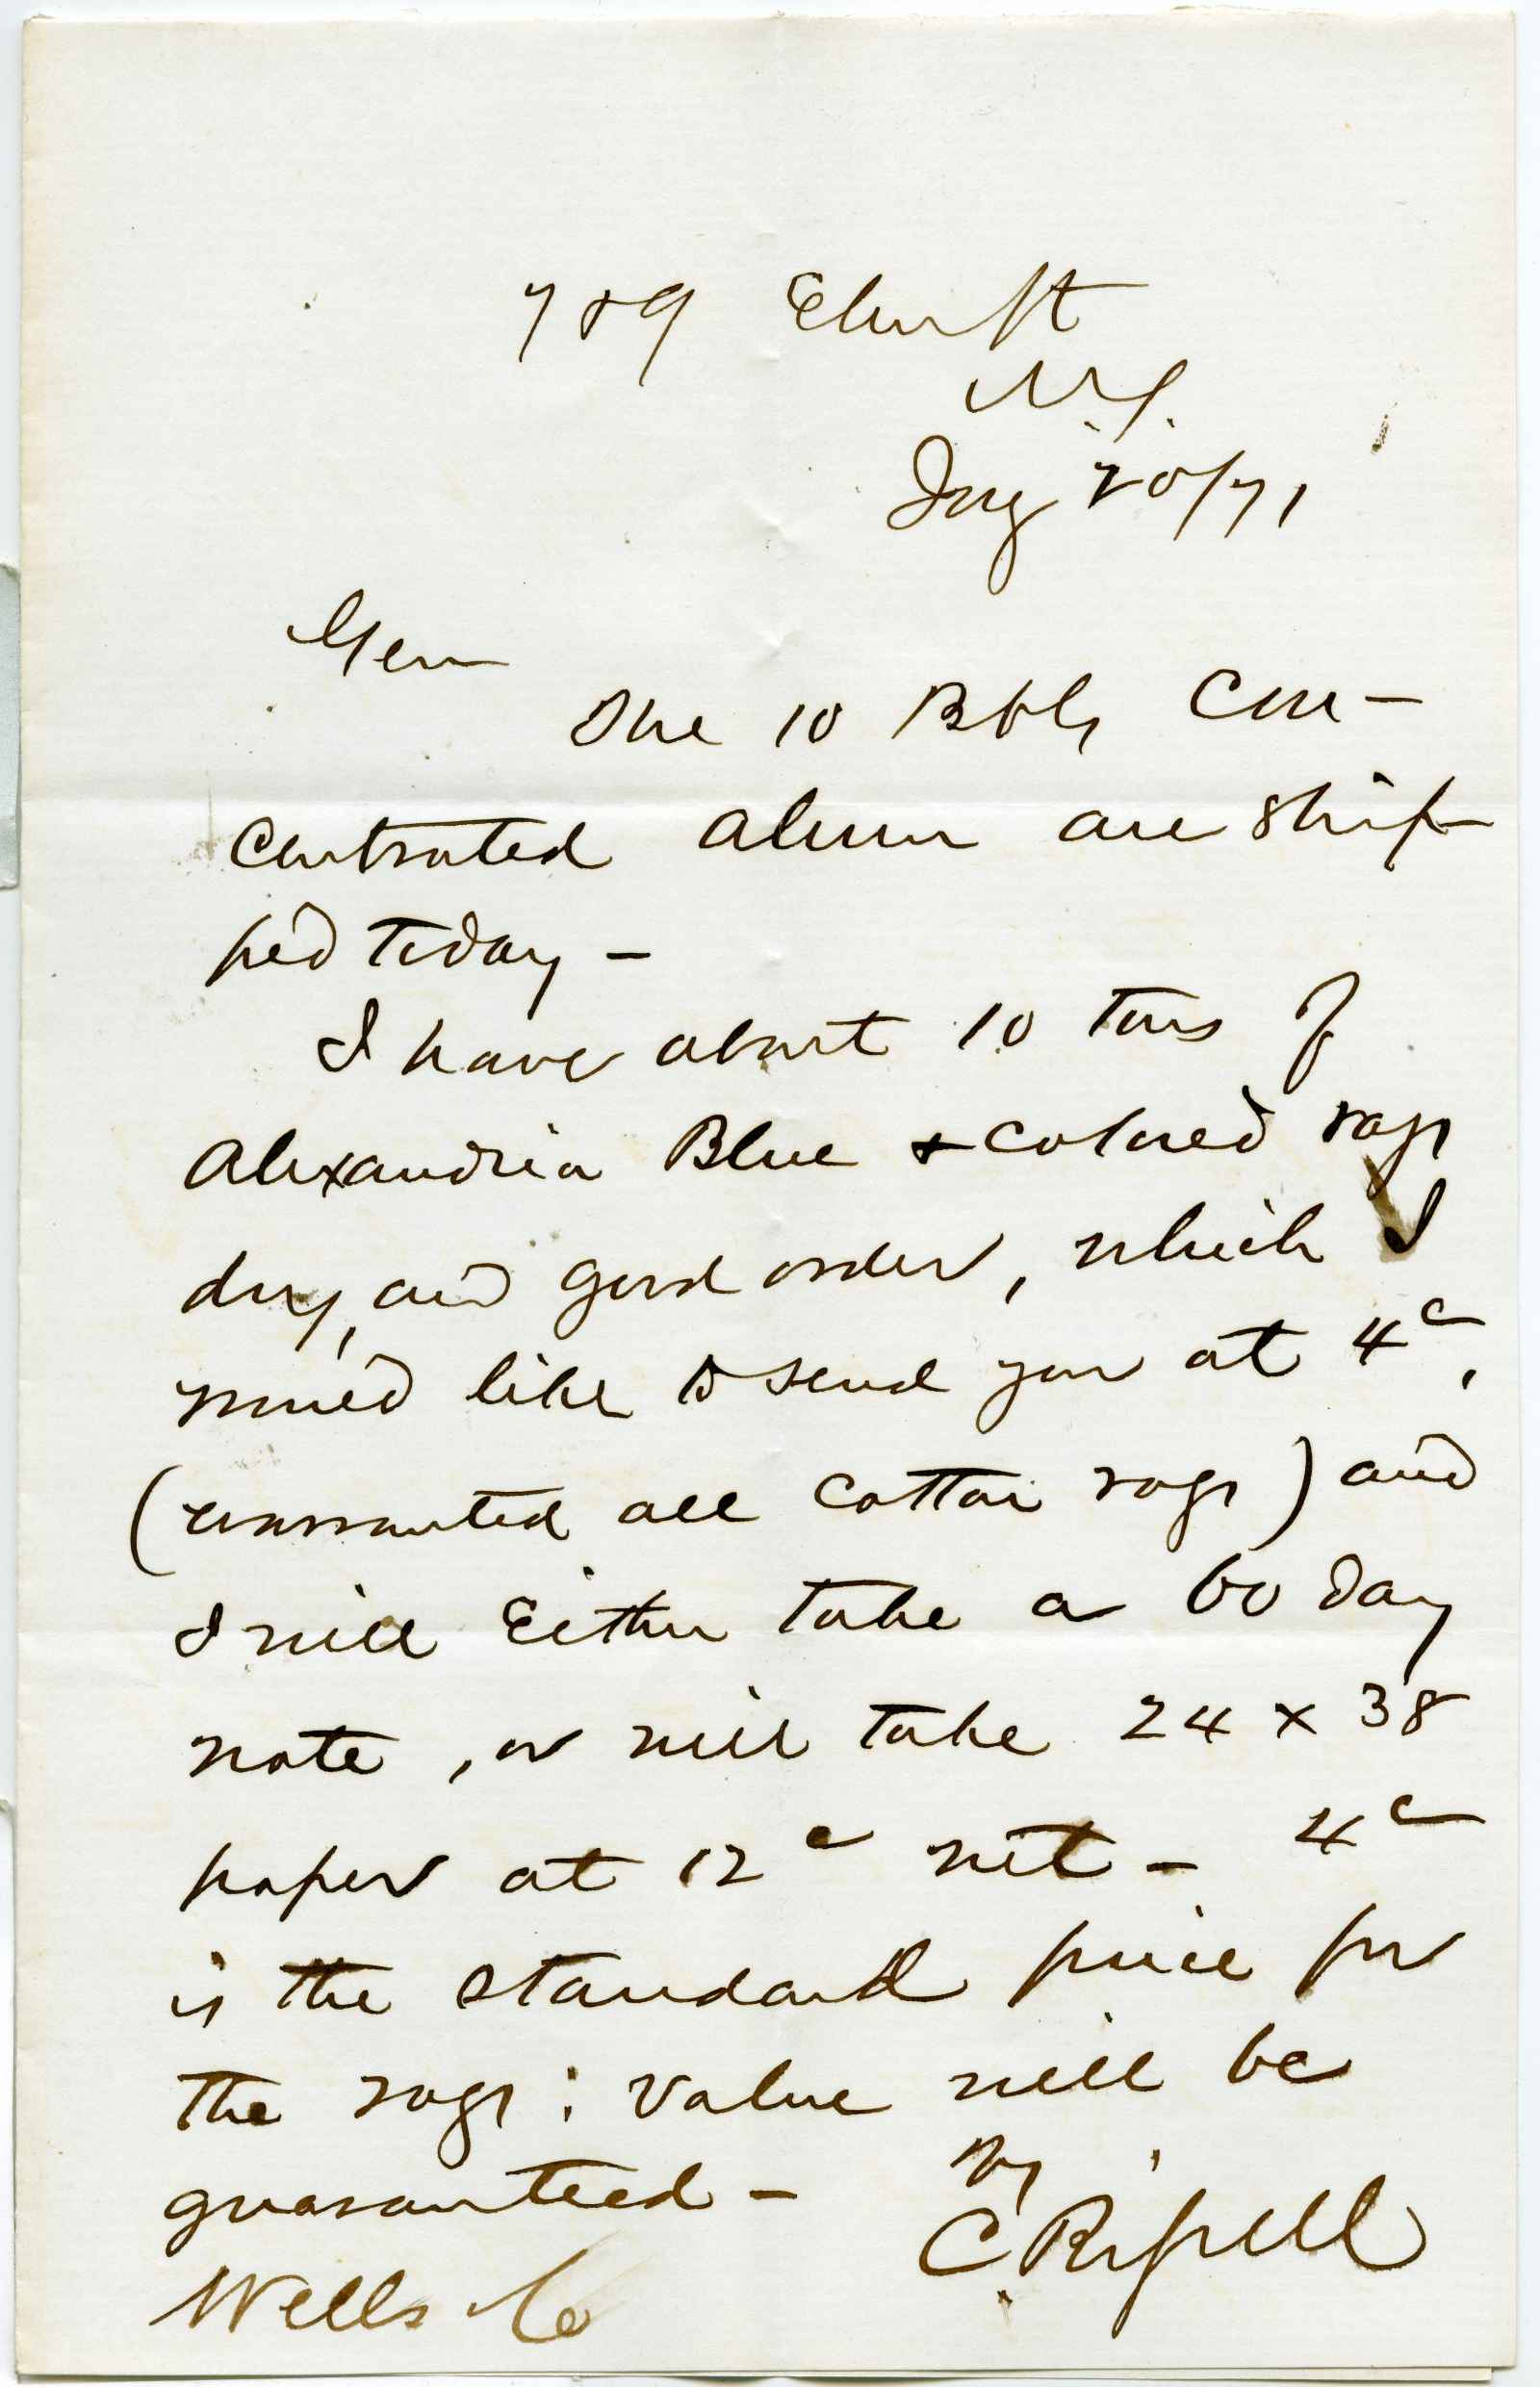 Elm St
N.Y.
20/71
Gen
The 10 Bbls Con-
centrated alum are ship-
ped today -
I have about 10 tons of
Alexandria Blue & colored rags
dry, and good order, which I
would like to send you at 4c,
(warranted all cotton rags) and
I will Either take a 60 day
note, or will take 24 x 38
paper at 12c net - 4c
is the standard price for
the rags: value will be
guaranteed -
C.
Wells Co